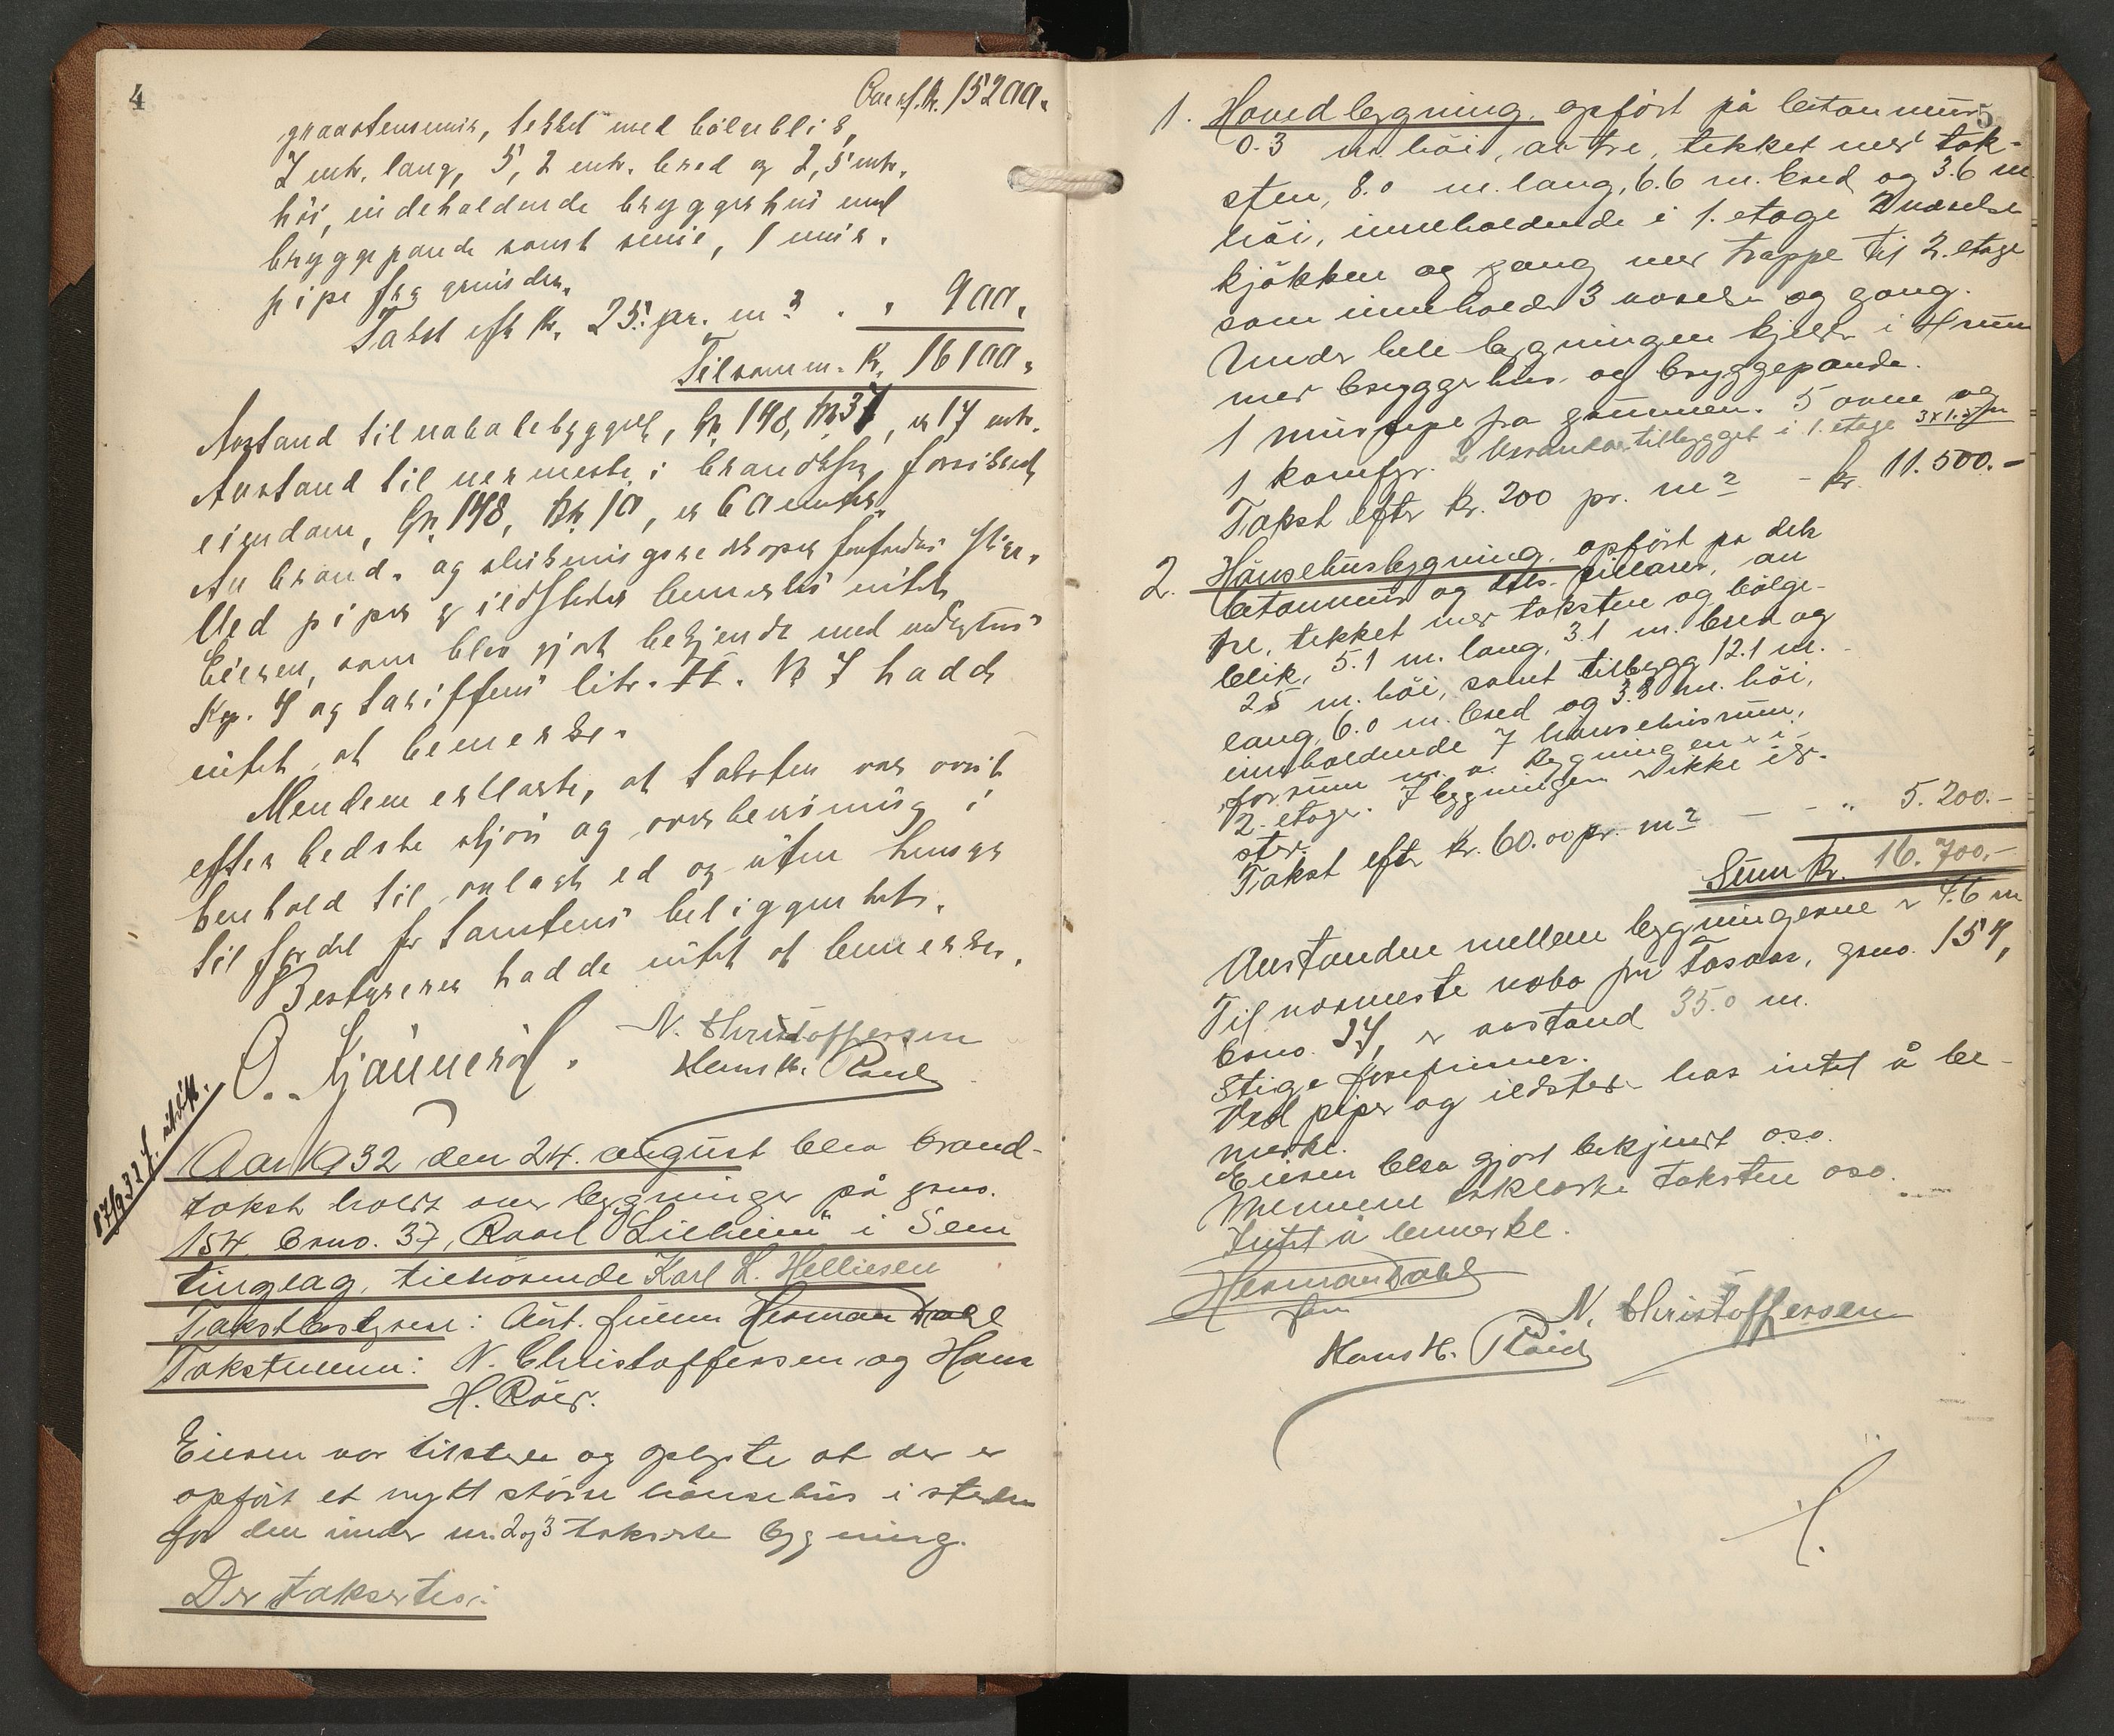 4
Overf. Kr. 15200.
graastensmur, tekket med bölgeblik,
7 mtr. lang, 5,2 mtr. bred og 2,5 mtr.
höi, indeholdende bryggerhus med
bryggepande samt 1 mur-
pipe fra grunden.
Takst eft. Kr. 25. pr. m² . " 900.
Tilsamm. Kr. 16100.
Avstand til nabobebyggelse, Gr. 148, Br. 37, er 17 mtr.
Avstand til nermeste i brandkassen forsikrede
eiendom, Gr. 148, Br. 10, er 60 mtr.
Av brand- og slukningsredskaper forefindes stige.
Ved piper og ildsteder bemerkes intet.
Eieren, som blev gjort bekjendt med
Kap. 4 og tariffens litr. H. Nr 7 hadde
intet at bemerke.
Mændene erklærte, at taksten var avsit
efter bedste skjön og overbevisning i
henhold til avlagt ed og uten hensyn
til fordel for tomtens beliggenhet.
Bestyreren hadde intet at bemerke.
O. Kjønnerød. N. Christoffersen
Hans H. Röed
Aar 1932 den 24. august blev brand-
takst holdt over bygninger på gno.
154 brno. 37, Roael "Lieheim" i Sem
tinglag, tilhörende Karl L. Helliesen
Takstbestyrer: Aut. fullm Herman Dahl
Takstmenn: N. Christoffersen og Hans
H. Röed.
Eieren var tilstede og oplyste at der er
opfört et nytt större hönsehus i stedet
for den under nr. 2 og 3 takserte bygning.
Der taksertes:
5
1. Hovedbygning, opfört på betonmur
0.3 m. höi, av tre, tekket med tak-
sten, 8.0 m. lang, 6.6 m. bred og 3.6 m
höi, inneholdende i 1. etage 2 værelser
kjökken og gang med trappe til 2. etage
som inneholder 3 værelser og gang.
Under hele bygningen kjeller i 4 rum
med bryggerhus og bryggepande.
1 murpipe fra grunnen. 5 ovne og
1 komfyr. 2 verandaer tilbygget i 1. etage 3x1.5 m
Takst efter kr. 200 pr. m² - kr. 11.500.-
2. Hönsehusbygning, opfört på dels
betonmur og dels pillarer, av
tre, tekket med taksten og bölge-
blik, 5.1 m. lang, 3.1 m. bred og
25 m. höi, samt tilbygg 12.1 m.
lang, 6.0 m. bred og 3.8 m. höi,
inneholdende 7 hönsehusrum,
forrum m. v. Bygningen er i
2. etage. I bygningen er ikke ild-
sted.
Takst efter kr. 60.00 pr. m² - - " 5.200.-
Sum kr. 16.700.-
Avstanden mellem bygningerne er 4.6 m
Til nærmeste nabo gno. 154,
brno. 24, er avstand 35.0 m.
Stige forefinnes.
Ved piper og ildsteder has intet å be-
merke.
Eieren blev gjort bekjent oso.
Mennene erklærte taksten oso.
Intet å bemerke.
Herman Dahl
N. Christoffersen
Hans H. Röed